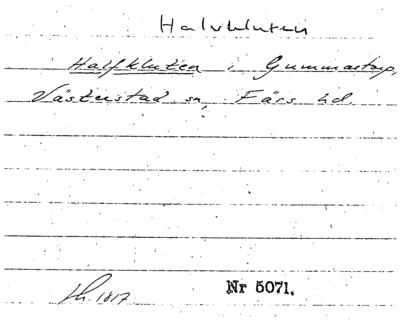 Halvkluten
Halfkluten i Gummastorp,
Västerstad sn, Färs hd.
Lh. 1817 Nr 5071.